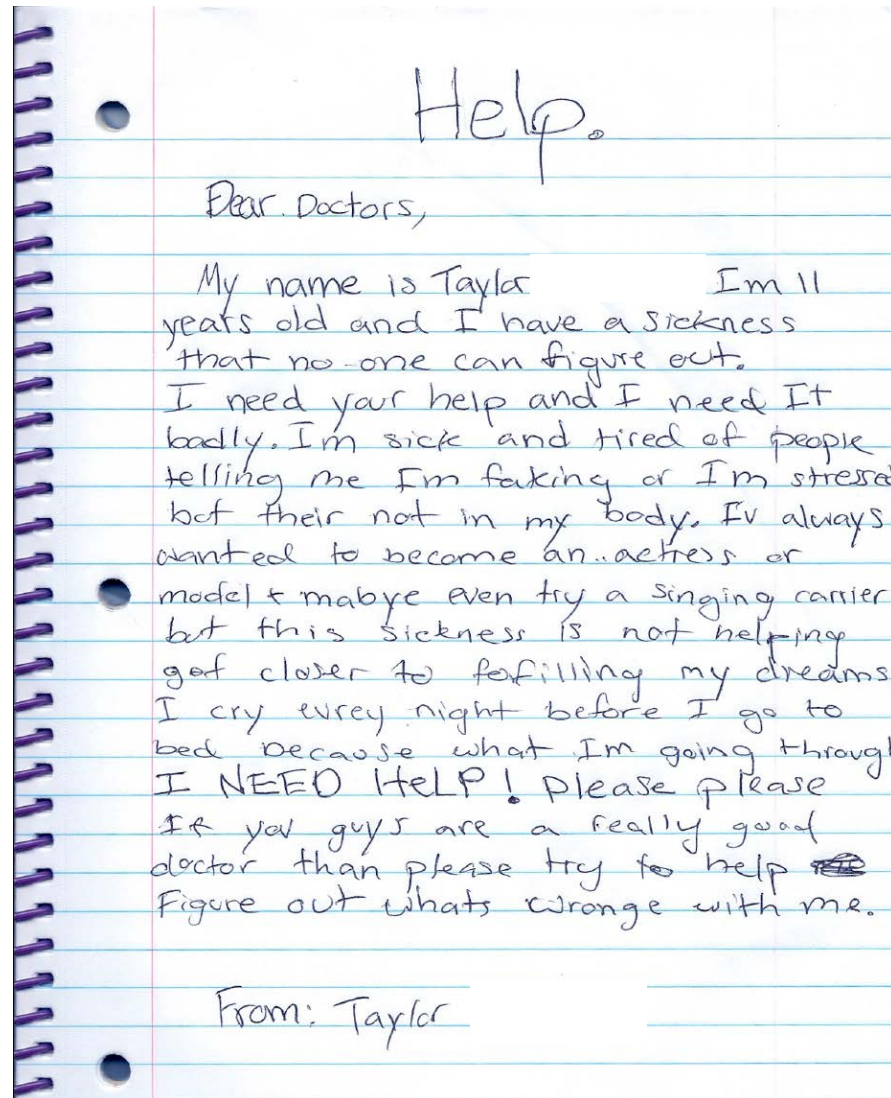 Help.
Dear Doctors,
My name is Taylor Im 11
years old and I have a sickness
that no one can figure out.
I need your help and I need It
badly. Im sick and tired of people
telling me Im faking or I'm stressed
but their not in my body. Iv always
wanted to become an actress or
model + mabye even try a singing carrier
but this sickness is not helping
get closer to forfilling my dreams
I cry evrey night before I go to
bed because what Im going through
I NEED HELP! please please
If you guys are a really good
doctor than please try to help
Figure out whats wronge with me.
From: Taylor